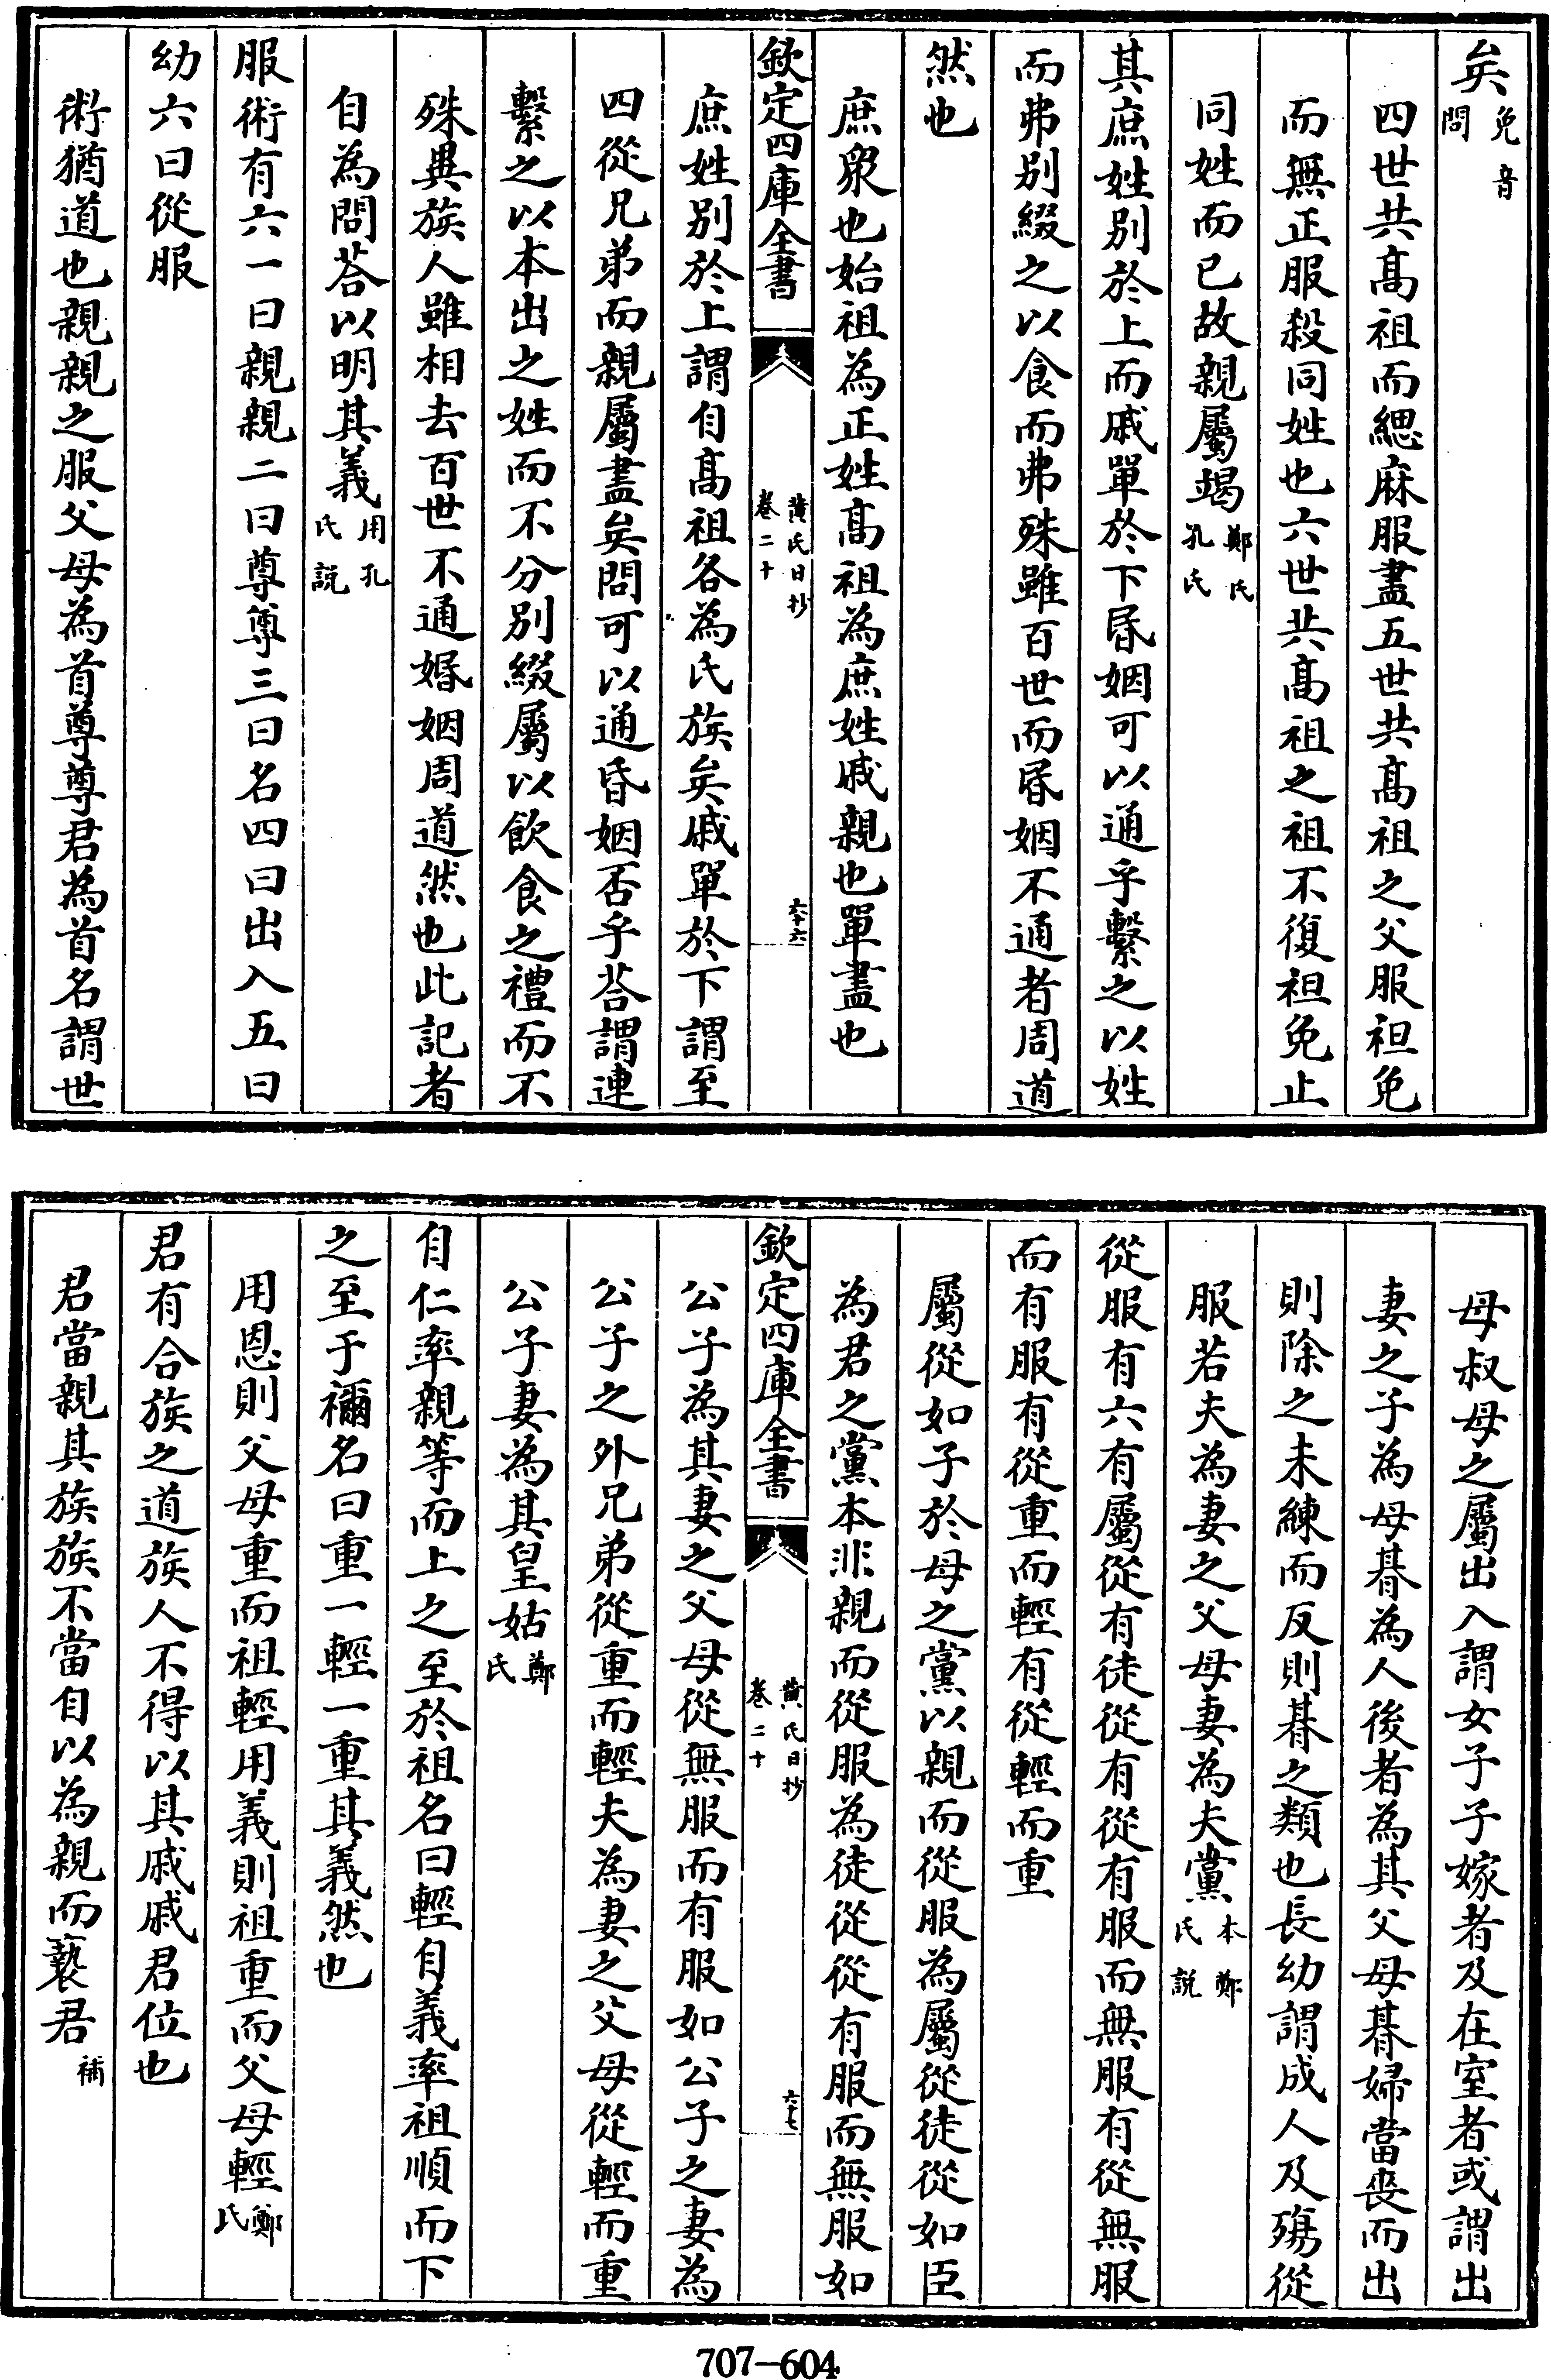 矣免音問
四世共髙祖而緦麻服盡五世共髙祖之父服袒免
而無正服殺同姓也六世共髙祖之祖不復袒免止
同姓而已故親屬竭鄭氏孔氏
其庶姓别於上而戚單於下昬姻可以通乎繫之以姓
而弗别綴之以食而弗殊雖百世而昬姻不通者周道
然也
庶衆也始祖為正姓髙祖為庶姓戚親也單盡也
欽定四庫全書
黄氏日抄
卷二十
六十六
庶姓别於上謂自髙祖各為氏族矣戚單於下謂至
四從兄弟而親屬盡矣問可以通昏姻否乎荅謂連
繫之以本出之姓而不分别綴屬以飲食之禮而不
殊異族人雖相去百世不通婚姻周道然也此記者
自為問荅以明其義用孔氏説
服術有六一曰親親二曰尊尊三曰名四曰出入五曰
幼六曰從服
術猶道也親親之服父母為首尊尊君為首名謂世
母叔母之屬出入謂女子子嫁者及在室者或謂出
妻之子為母朞為人後者為其父母朞婦當喪而出
則除之未練而反則朞之類也長幼謂成人及殤從
服若夫為妻之父母妻為夫黨本鄭氏説
從服有六有屬從有徒從有從有服而無服有從無服
而有服有從重而輕有從輕而重
屬從如子於母之黨以親而從服為屬從徒從如臣
為君之黨本非親而從服為徒從從有服而無服如
欽定四庫全書
黄氏日抄
卷二十
六十七
公子為其妻之父母從無服而有服如公子之妻為
公子之外兄弟從重而輕夫為妻之父母從輕而重
公子妻為其皇姑鄭氏
自仁率親等而上之至於祖名曰輕自義率祖順而下
之至于禰名曰重一輕一重其義然也
用恩則父母重而祖輕用義則祖重而父母輕鄭氏
君有合族之道族人不得以其戚戚君位也
君當親其族族不當自以為親而褻君補
707-604